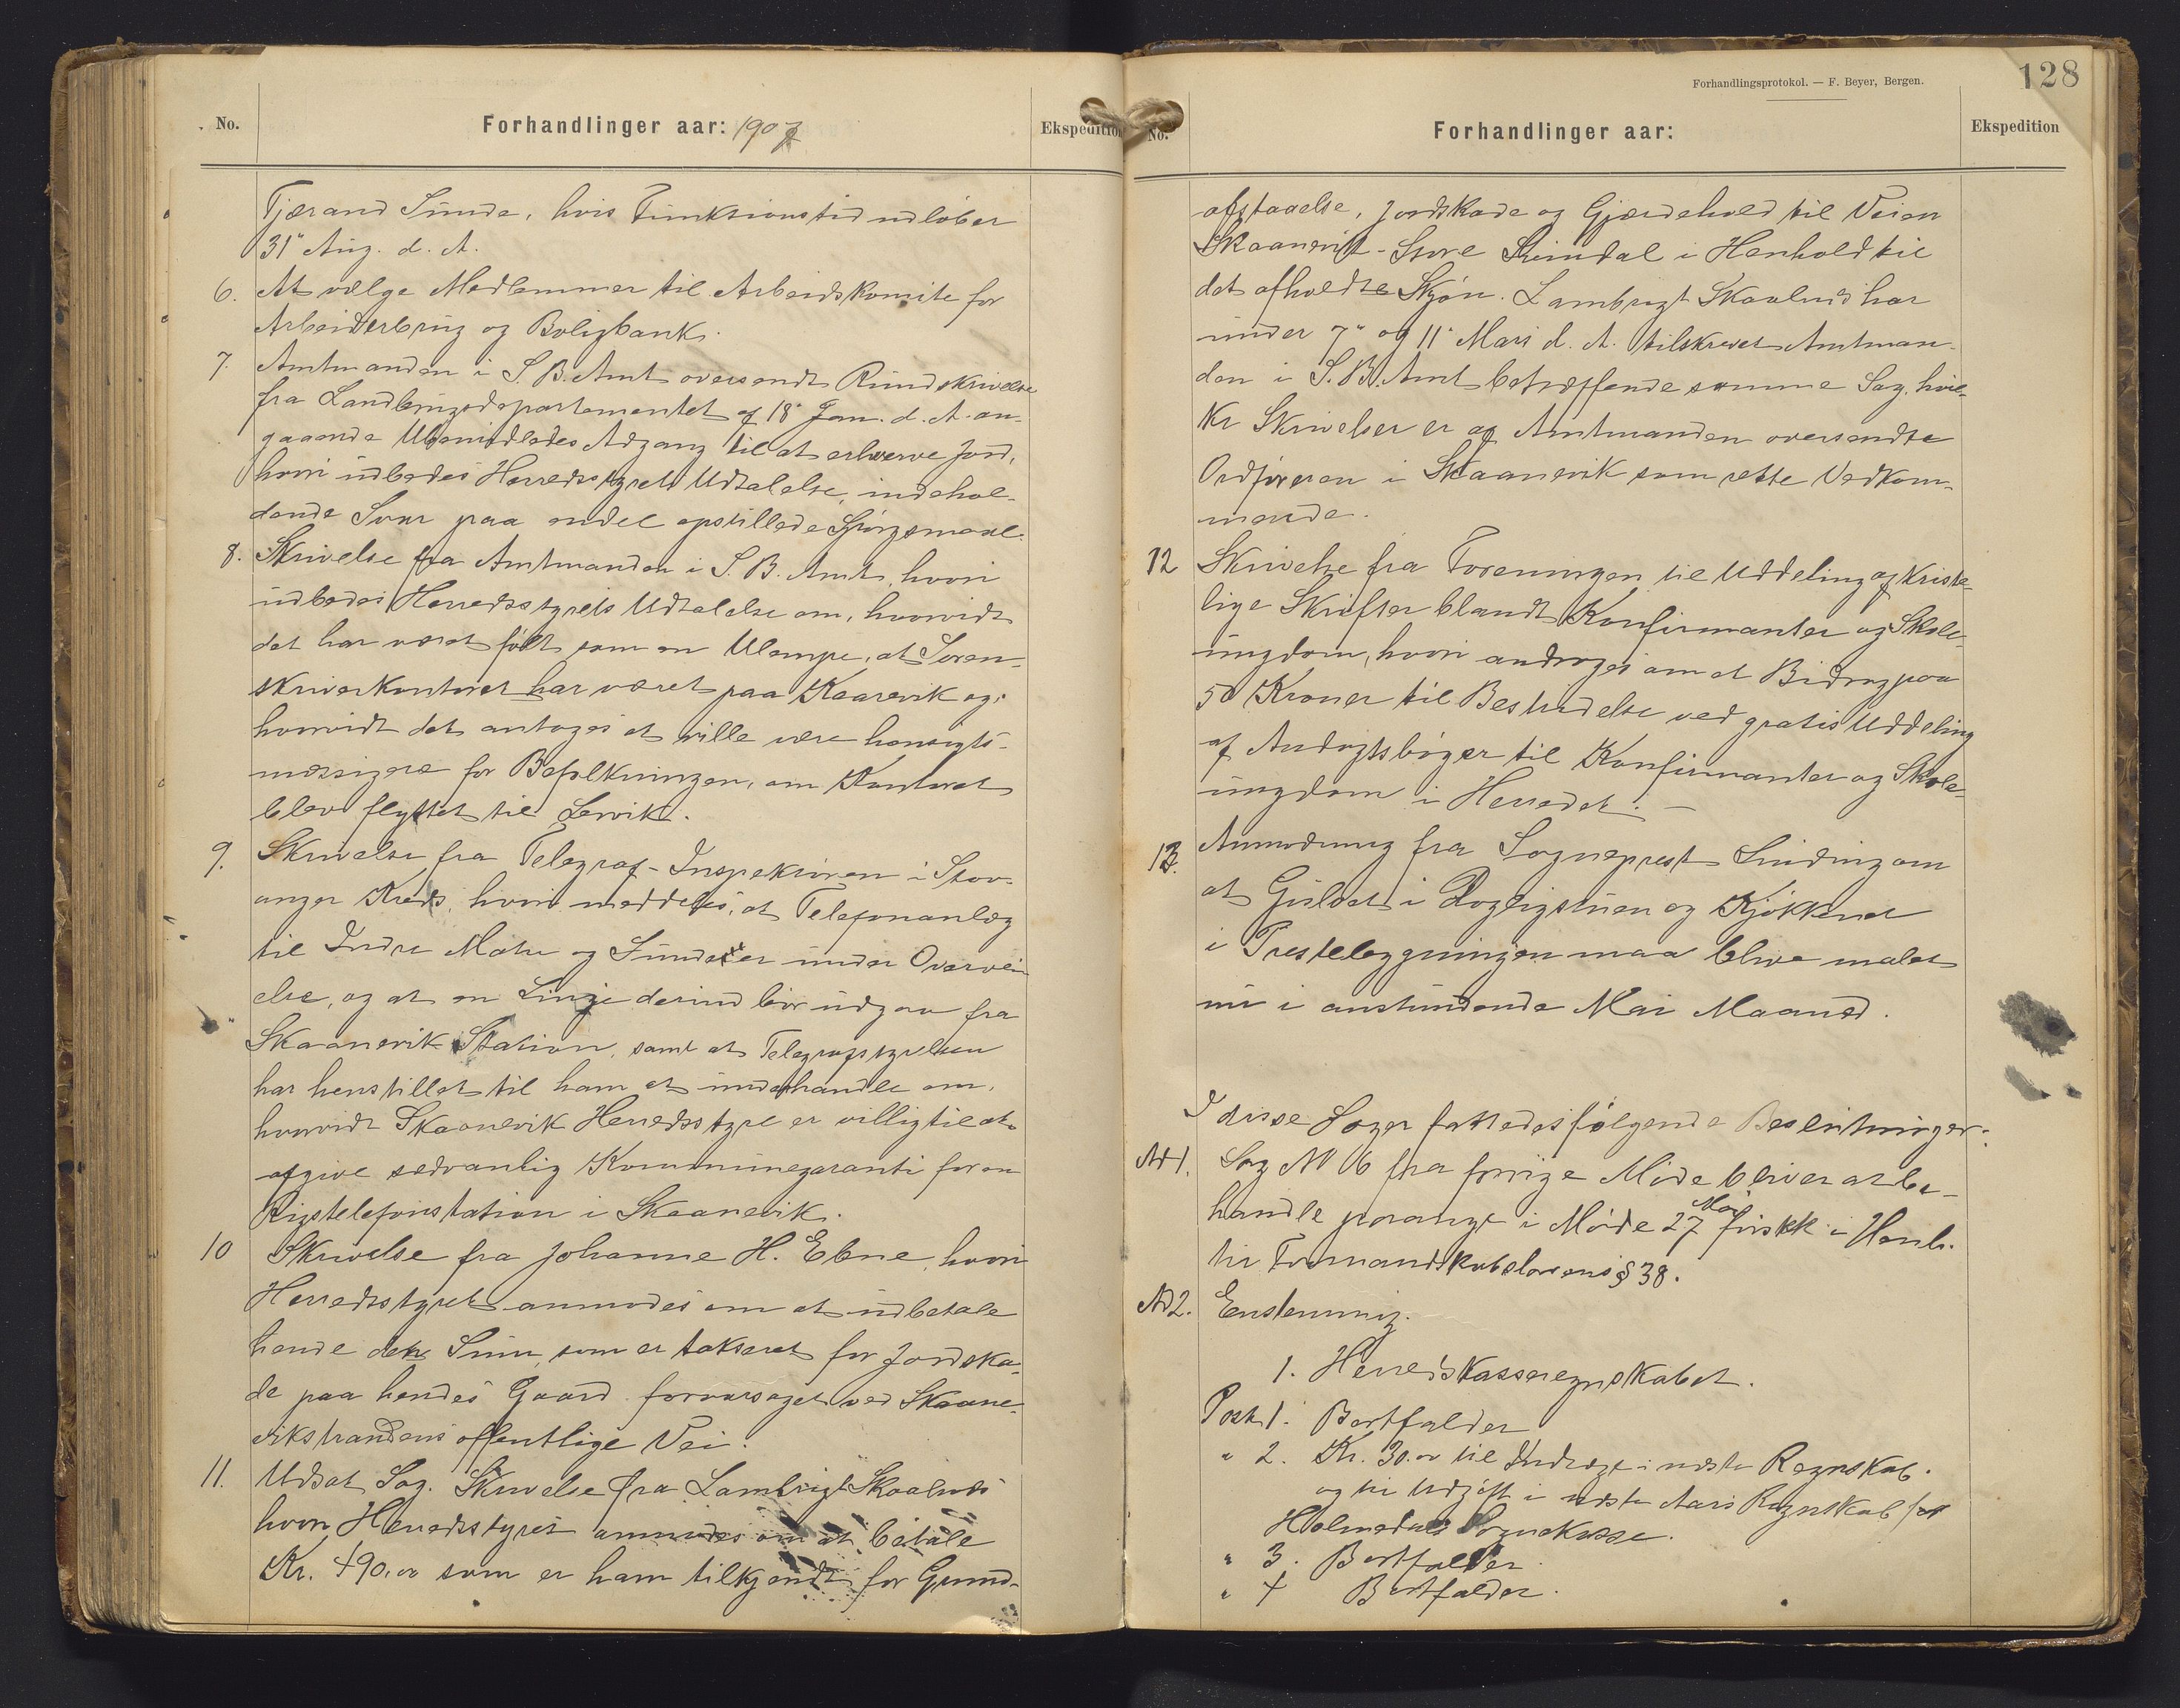 No.
Forhandlinger aar: 1907
Ekspedition
Tjærand Sunde, hvis Funktionstid udløber
31' Aug. d. A.
6. At vælge Medlemmer til Arbeidskomite for
Arbeiderbrug og Boligbank.
7. Amtmanden i S. B. Amt oversendt Rundskrivelse
fra Landbrugsdepartementet af 18' Jan. d. A. an-
gaaende Ubemidledes Adgang til at erhverve Jord,
hvori udbedes Herredsstyrets Udtalelse, indehol-
dende Svar paa endel opstillede Spørgsmaal.
8. Skrivelse fra Amtmanden i S. B. Amt, hvori
udbedes Herredsstyrets Udtalelse om, hvorvidt
det har været følt som en Ulempe, at Soren-
skriverkontoret har været paa Kaarevik og,
hvorvidt det antages at ville være hensigts-
mæssigere for Befolkningen, om Kontoret
blev flyttet til Lervik.
9. Skrivelse fra Telegraf-Inspektøren i Stav-
anger Kreds, hvori meddeles, at Telefonanlæg
til Indre Matre og Sunde er under Overvei-
else, og at en Linje derind bør udgaa fra
Skaanevik Station, samt at Telegrafstyrelsen
har henstillet til ham at underhandle om,
hvorvidt Skaanevik Herredsstyre er villig til at
afgive sedvanlig Kommunegaranti for en
Rigstelefonstation i Skaanevik.
10 Skrivelse fra Johanne H. Ebne, hvori
Herredsstyret anmodes om at udbetale
hende den Sum, som er takseret for Jordska-
de paa hendes Gaard forvarsaget ved Skaane-
vikstrandens offentlige Vei.
11. Udsat Sag. Skrivelse fra Lambrigt Skaalnes
hvori Herredsstyret anmodes om at betale
Kr. 490.00 som er ham tilkjendt for Grund-
Forhandlingsprotokol. — F. Beyer, Bergen.
128
No.
Forhandlinger aar:
Ekspedition
afstaaelse, Jordskade og Gjærdehold til Veien
Skaanevik - Store Studal i Henhold til
det afholdte Skjøn. Lambrigt Skaalnes har
under 7' og 11' Mars d. A. tilskrevet Amtman-
den i S. B. Amt betræffende samme Sag, hvil-
ke Skrivelser er af Amtmanden oversendte
Ordføreren i Skaanevik som rette Vedkom-
mende.
12 Skrivelse fra Foreningen til Uddeling af kriste-
lige Skrifter blandt Konfirmanter og Skole-
ungdom, hvori androges om et Bidrag paa
50 Kroner til Bestridelse ved gratis Uddeling
af Andagtsbøger til Konfirmanter og Skole-
ungdom i Herredet. —
13. Anmodning fra Sogneprest Sinding om
at Gulvet i Dagligstuen og Kjøkkenet
i Prestebygningen maa blive malet
nu i anstundende Mai Maaned.
I disse Sager fattedes følgende Beslutninger:
Ad 1. Sag N 6 fra forrige Møde bliver at be-
handle paanyt i Møde 27 Mai førstk. i Henh.
til Formandskabslovens § 38.
Ad 2. Enstemmig.
1. Herredskasseregnskabet.
Post 1. Bortfalder
" 2. Kr. 30.00 til Indtægt i næste Regnskab.
og til Udgift i næste Aars Regnskab for
Holmedals Sognekasse.
" 3. Bortfalder.
" 4 Bortfalder.